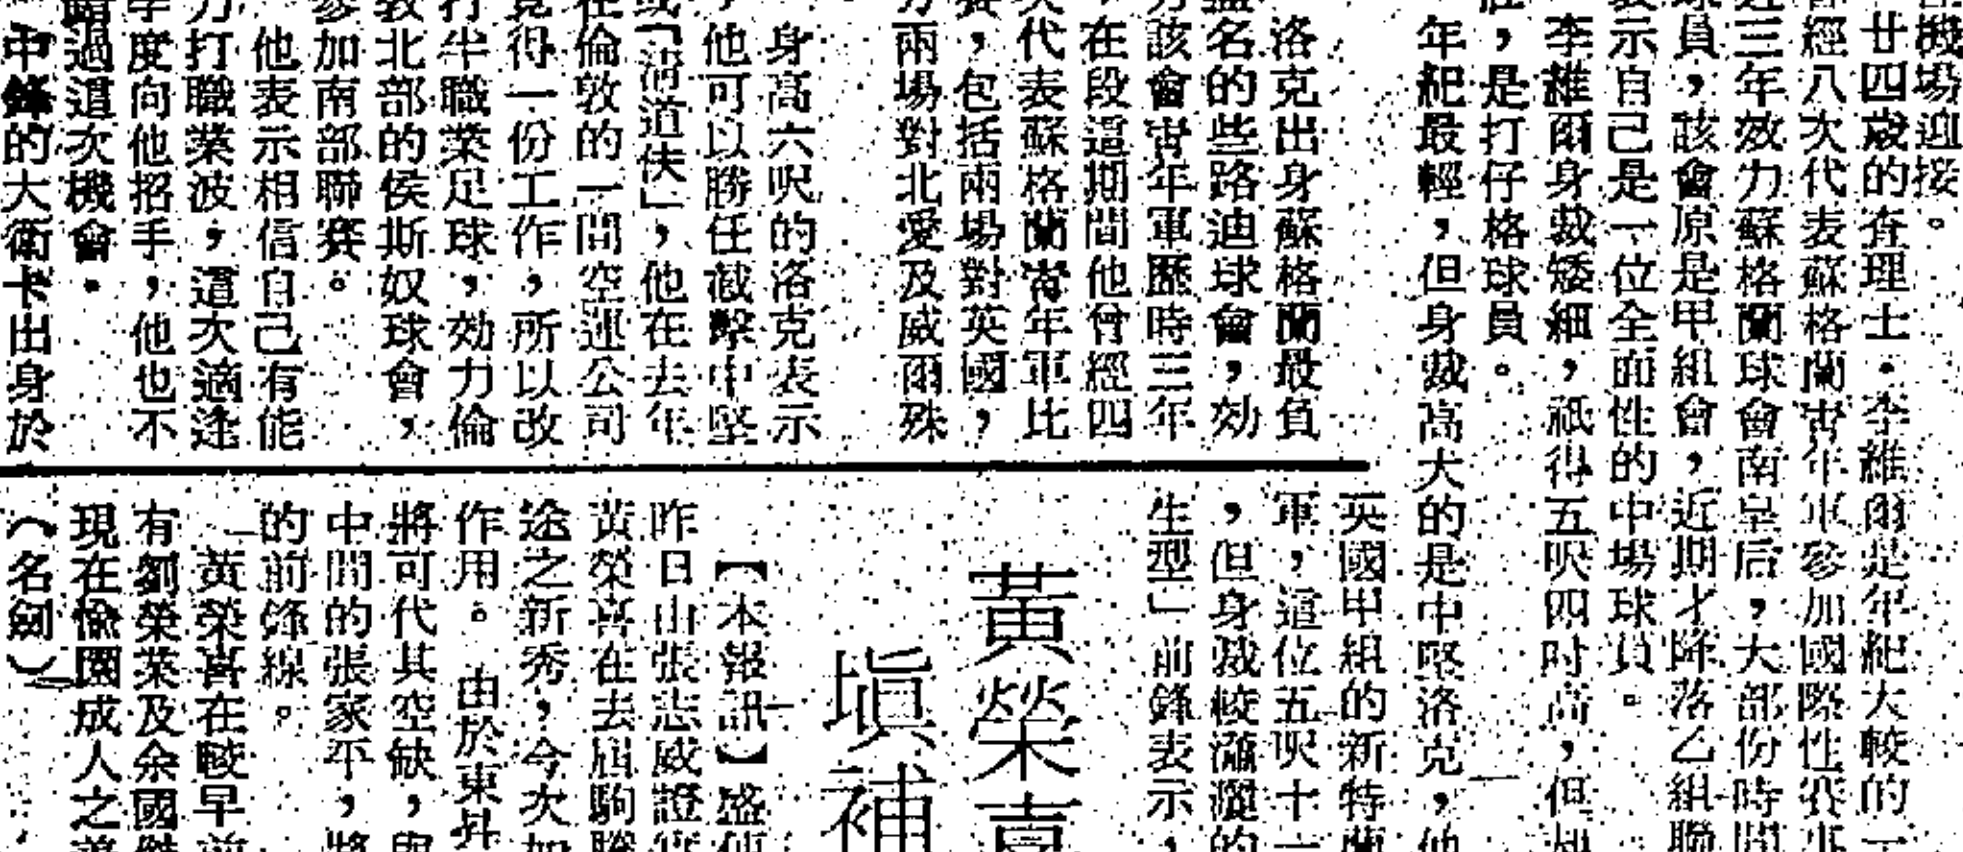 機場迎接。
廿四歲的查理士·李維爾是年紀大較的一
經八次代表蘇格蘭青年軍參加國際性賽事
三年效力蘇格蘭球會南皇后，大部份時間
球員，該會原是甲組會，近期才降落乙組聯
示自己是一位全面性的中場球員。
李維爾身裁矮細，祗得五呎四吋高，但
，是打仔格球員。
年紀最輕，但身裁高大的是中堅洛克，他
英國甲組的新特蘭
軍，這位五呎十一
，但身裁較瀟灑的
生型」前鋒表示，
洛克出身蘇格蘭最負
盛名的些路迪球會，効
力該會青年軍歷時三年
，在段這期間他曾經四
次代表蘇格蘭青年軍比
賽，包括兩場對英國，
方兩場對北愛及威爾殊
身高六呎的洛克表示
，他可以勝任截擊中堅
或「清道伕」，他在去年
在倫敦的一間空運公司
覓得一份工作，所以改
打半職業足球，効力倫
敦北部的侯斯奴球會，
參加南部聯賽。
他表示相信自己有能
力打職業波，這次適逢
度向他招手，他也不
錯過這次機會。
中鋒的大衛卡出身於
黃榮喜
塡補
【本報訊】盛
昨日由張志威證實
黃榮喜在去屆駒騰
途之新秀，今次加
作用。由於東昇
將可代其空缺，與
中間的張家平，將
的前鋒線。
黃榮喜在較早前
有劉榮業及余國傑
現在愉園成人之美
（名劍）